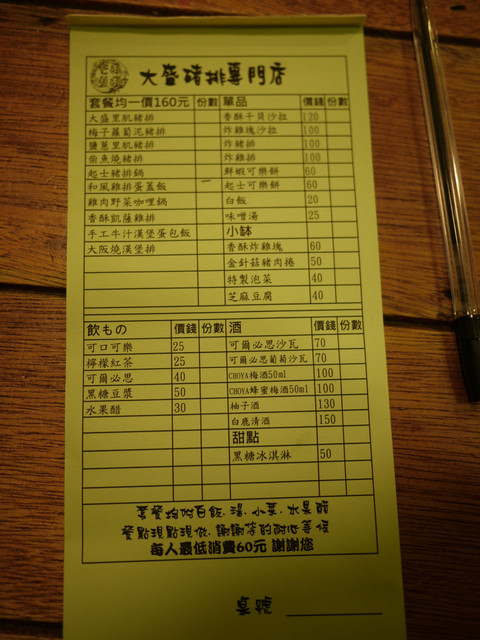 大盛豬排專門店
套餐均一價160元 份數 單品 價錢 份數
大盛里肌豬排 香酥干貝沙拉 120
梅子蘿蔔泥豬排 炸雞塊沙拉 100
鹽蔥里肌豬排 炸豬排 100
柴魚燒豬排 炸雞排 100
起士豬排鍋 鮮蝦可樂餅 60
和風雞排蛋蓋飯 一 起士可樂餅 60
雞肉野菜咖哩鍋 白飯 20
香酥凱薩雞排 味噌湯 25
手工牛汁漢堡蛋包飯 小缽
大阪燒漢堡排 香酥炸雞塊 60
金針菇豬肉捲 50
特製泡菜 40
芝麻豆腐 40
飲もの 價錢 份數 酒 價錢 份數
可口可樂 25 可爾必思沙瓦 70
檸檬紅茶 25 可爾必思葡萄沙瓦 70
可爾必思 40 CHOYA梅酒50ml 100
黑糖豆漿 50 CHOYA蜂蜜梅酒50ml 100
水果醋 30 柚子酒 130
白鹿清酒 150
甜點
黑糖冰淇淋 50
套餐均附白飯.湯.小菜.水果醋
餐點現點現做.謝謝您的耐心等候
每人最低消費60元 謝謝您
桌號